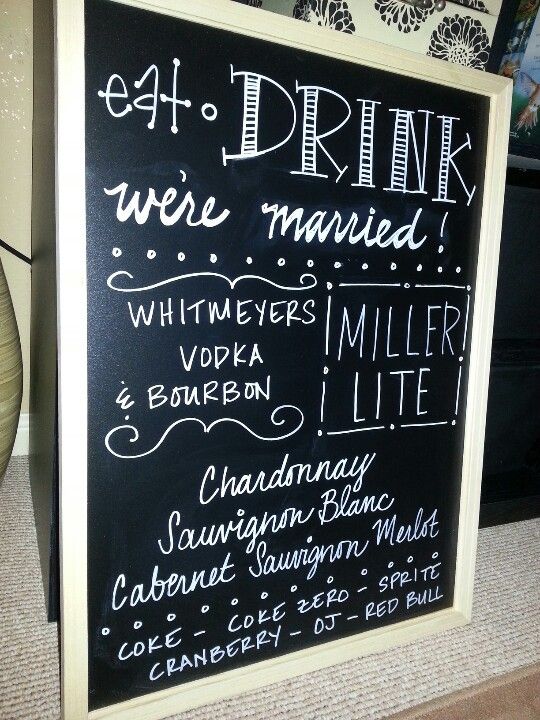 eat. DRINK
we're married!
WHITMEYERS
VODKA
& BOURBON
MILLER
LITE
Chardonnay
Sauvignon Blanc
Cabernet Sauvignon Merlot
COKE - COKE ZERO - SPRITE
CRANBERRY - OJ - RED BULL